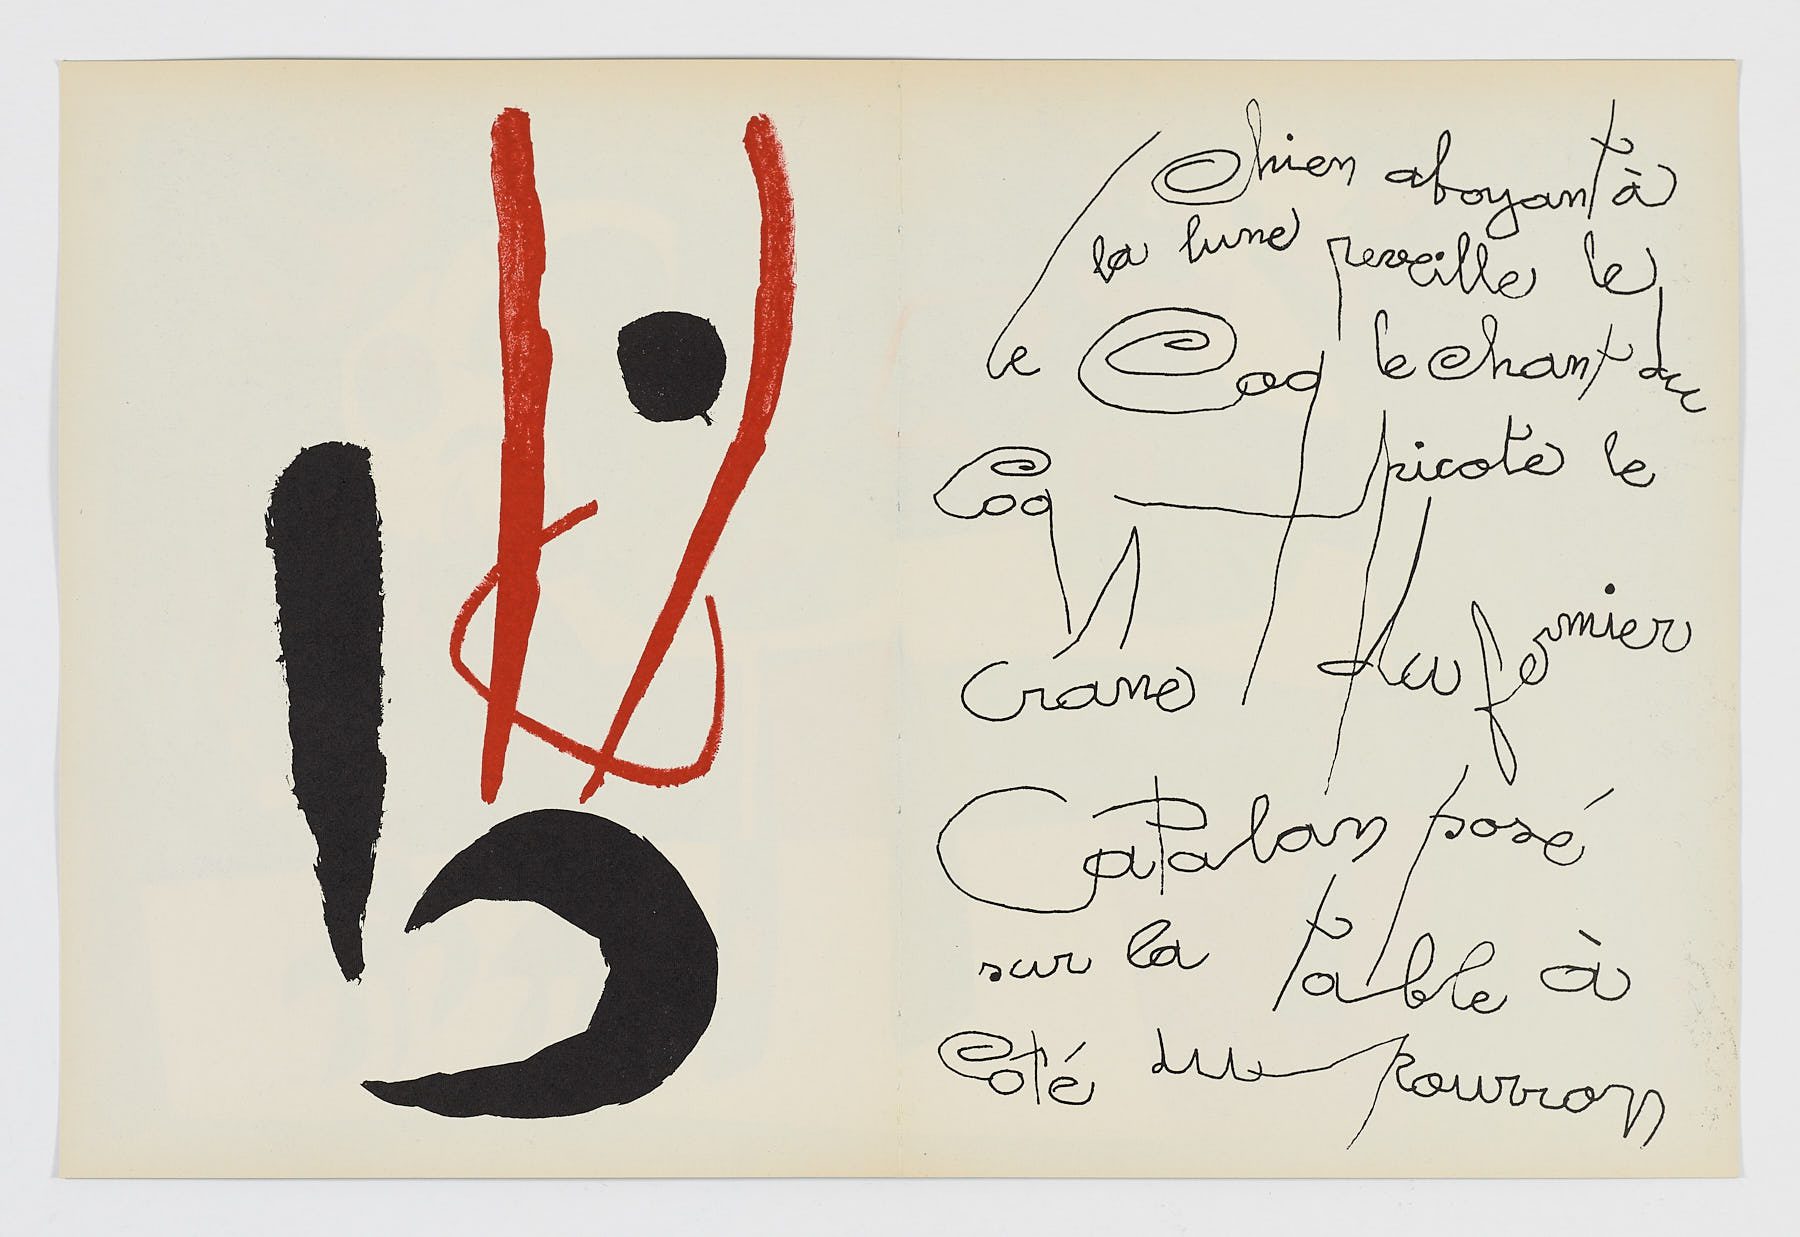 le chien aboyant à
la lune reveille le
Coq le chant du
Coq picote le
crane du fermier
Catalan posé
sur la table à
Coté du pourron